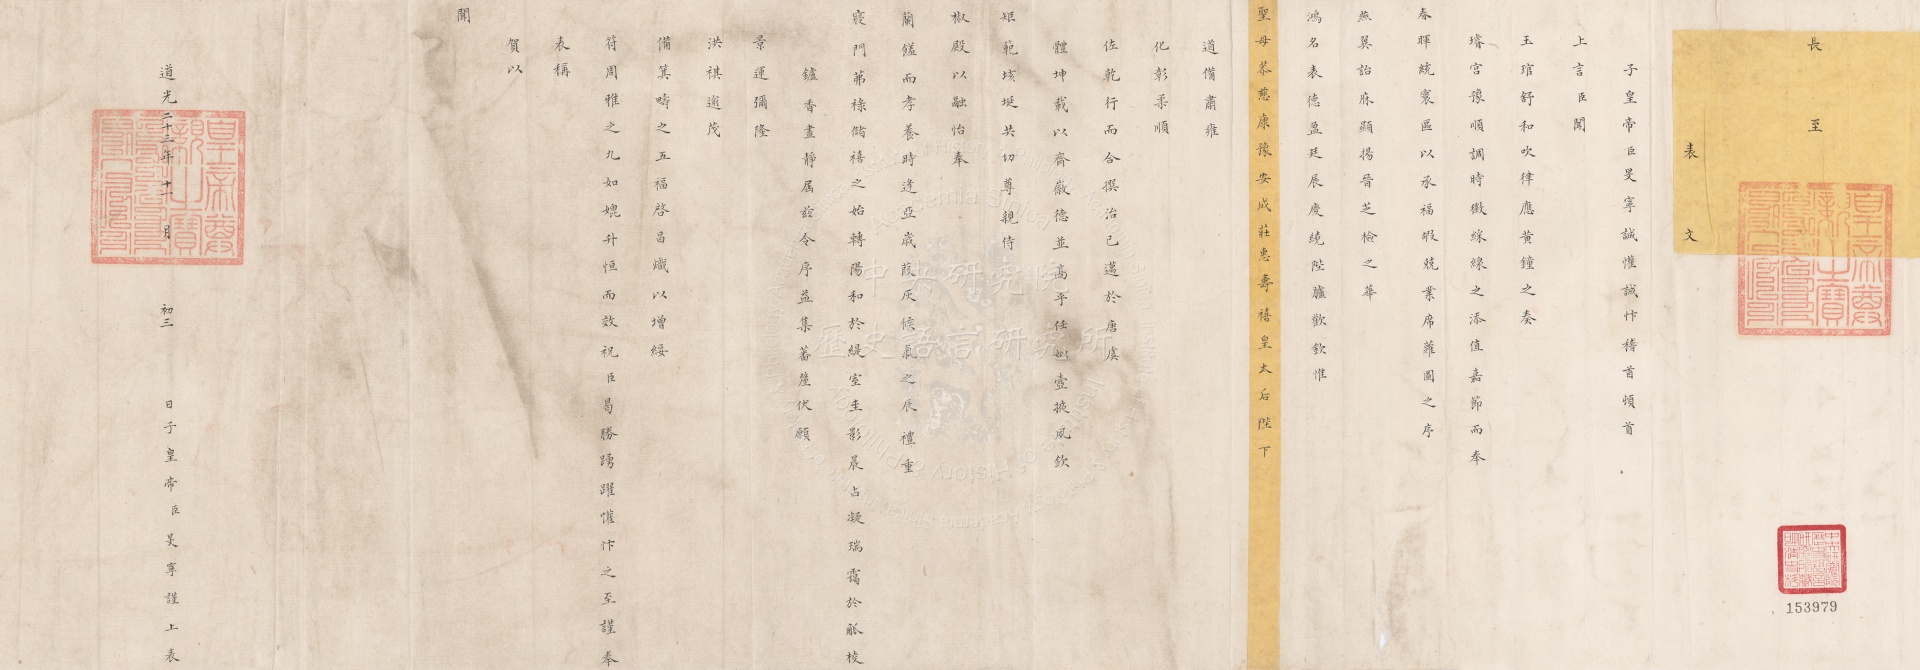 長至
表文
子皇帝臣旻寧誠懽誠忭稽首頓首
上言臣聞
玉琯舒和吹律應黃鐘之奏
璿宮豫順調時徵綵線之添值嘉節而奉
春暉統寰區以承福嘏兢業席蘿圖之序
燕翼詒庥顯揚晉芝檢之華
鴻名表德盈廷辰慶繞陛臚歡欽惟
聖母恭慈康豫安成莊惠壽禧皇太后陛下
道備肅雍
化彰柔順
佐乾行而合撰治已邁於唐虞
體坤載以齊徽德並高乎任姒壼掖風欽
矩範垓埏共切尊親侍
椒殿以融怡奉
蘭饈而孝養時逢亞歲葭灰候氣之辰禮重
寢門茀祿儲禧之始轉陽和於緹室圭影晨占凝瑞靄於觚棱
鑪香晝靜屆茲令序益集蕃釐伏願
景運彌隆
洪祺遹茂
備箕疇之五福啓昌熾以增綏
符周雅之九如媲升恒而效祝臣曷勝踴躍懽忭之至謹奉
表稱
賀以
聞
道光二十三年十一月初三日子皇帝臣旻寧謹上表
皇帝尊親之寶
153979
中央研究院
歷史語言研究所
Academia Sinica